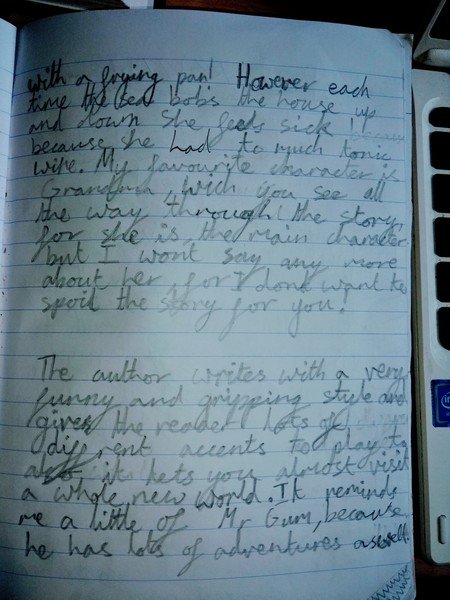 with a frying pan! However each
time the sea bobs the house up
and down she feels sick
because she had to much tonic
wine. My favourite character is
Grandma, wich you see all
the way through the story,
for she is the main character
but I wont say any more
about her, for I dond want to
spoil the story for you.
The author writes with a very
funny and gripping style and
gives the reader lots of
different accents to play to
it lets you almost visit
a whole new world. It reminds
me a little of Mr Gum, because
he has lots of adventures aswell.